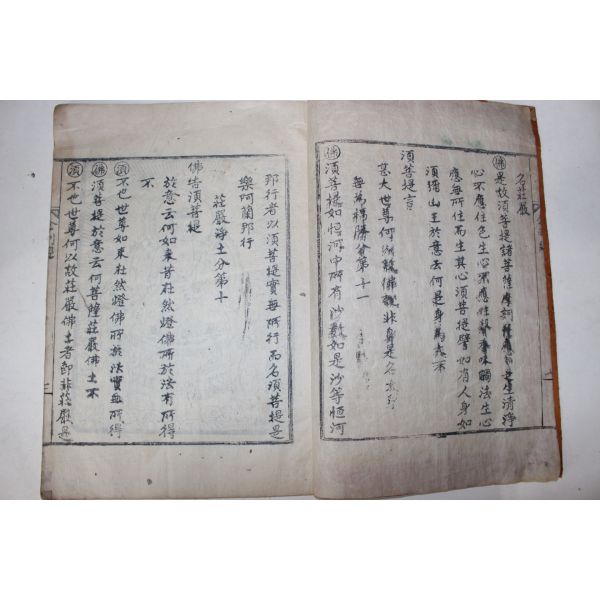 名莊嚴
佛 是故須菩提諸菩薩摩訶薩應如是生清淨
心不應住色生心不應住聲香味觸法生心
應無所住而生其心須菩提譬如有人身如
須彌山王於意云何是身為大不
須菩提言
甚大世尊何以故佛說非身是名大身
無為福勝分第十一
佛 須菩提如恒河中所有沙數如是沙等恒河
那行者以須菩提實無所行而名須菩提是
樂阿蘭那行
莊嚴淨土分第十
佛告須菩提
於意云何如來昔在然燈佛所於法有所得
不
須 不也世尊如來在然燈佛所於法實無所得
佛 須菩提於意云何菩薩莊嚴佛土不
須 不也世尊何以故莊嚴佛土者即非莊嚴是